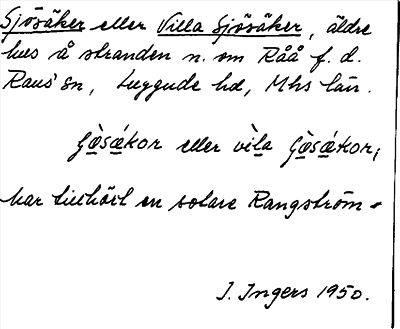 Sjösäker eller Villa Sjösäker, äldre
hus å stranden n. om Råå f. d.
Raus sn, Luggude hd, Mhs län.
eller
har tillhört en solare Rangström.
J. Ingers 1950.